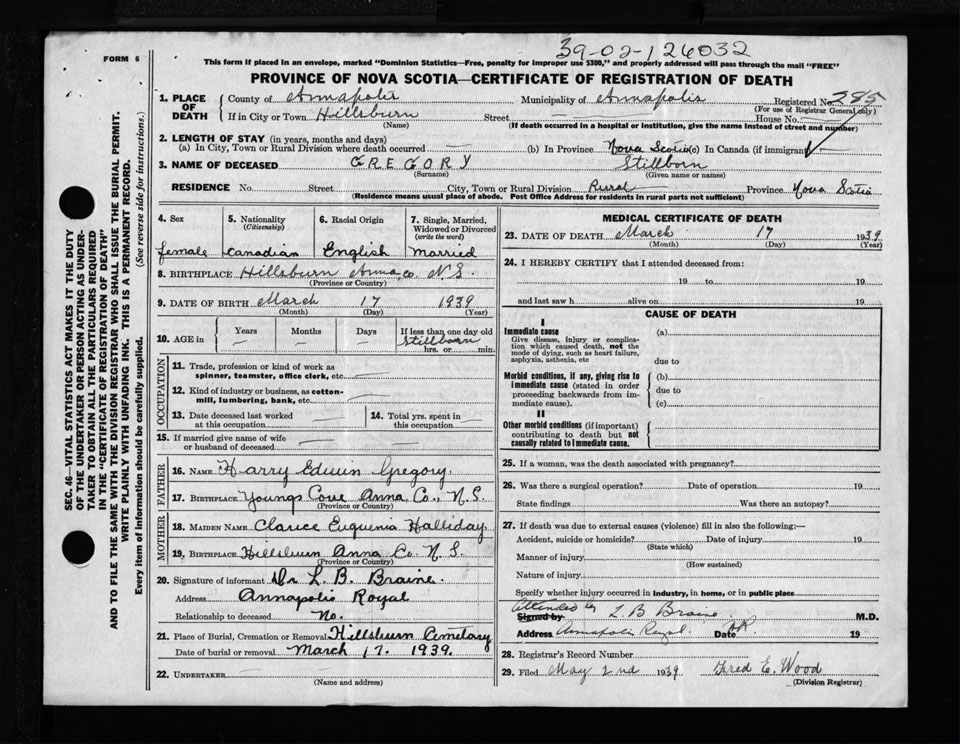 39-02-126032
FORM 6
This form if placed in an envelope, marked "Dominion Statistics—Free, penalty for improper use $300," and properly addressed will pass through the mail "FREE"
PROVINCE OF NOVA SCOTIA—CERTIFICATE OF REGISTRATION OF DEATH
SEC. 46—VITAL STATISTICS ACT MAKES IT THE DUTY
OF THE UNDERTAKER OR PERSON ACTING AS UNDER-
TAKER TO OBTAIN ALL THE PARTICULARS REQUIRED
IN THE "CERTIFICATE OF REGISTRATION OF DEATH"
AND TO FILE THE SAME WITH THE DIVISION REGISTRAR WHO SHALL ISSUE THE BURIAL PERMIT.
WRITE PLAINLY WITH UNFADING INK. THIS IS A PERMANENT RECORD.
Every item of information should be carefully supplied. (See reverse side for instructions.)
1. PLACE OF DEATH
County of Annapolis Municipality of Annapolis Registered No. 285
(For use of Registrar General only)
If in City or Town Hillsburn Street — House No. —
(Name) (If death occurred in a hospital or institution, give the name instead of street and number)
2. LENGTH OF STAY (in years, months and days)
(a) In City, Town or Rural Division where death occurred — (b) In Province Nova Scotia (c) In Canada (if immigrant) —
3. NAME OF DECEASED GREGORY Stillborn
(Surname) (Given name or names)
RESIDENCE No. Street City, Town or Rural Division Rural Province Nova Scotia
(Residence means usual place of abode. Post Office Address for residents in rural parts not sufficient)
4. Sex 5. Nationality (Citizenship) 6. Racial Origin 7. Single, Married, Widowed or Divorced (write the word)
female Canadian English Married
8. BIRTHPLACE Hillsburn Anna, Co. N.S.
(Province or Country)
9. DATE OF BIRTH March 17 1939
(Month) (Day) (Year)
10. AGE in Years Months Days If less than one day old
— — — Stillborn
hrs. or min.
OCCUPATION
11. Trade, profession or kind of work as
spinner, teamster, office clerk, etc. —
12. Kind of industry or business, as cotton-
mill, lumbering, bank, etc. —
13. Date deceased last worked
at this occupation —
14. Total yrs. spent in
this occupation —
15. If married give name of wife
or husband of deceased —
FATHER
16. NAME Harry Edwin Gregory
17. BIRTHPLACE Youngs Cove Anna Co., N.S.
(Province or Country)
MOTHER
18. MAIDEN NAME Clarice Euguenia Halliday
19. BIRTHPLACE Hillsburn Anna Co. N.S.
(Province or Country)
20. Signature of informant Dr L. B. Braine.
Address Annapolis Royal
Relationship to deceased No.
21. Place of Burial, Cremation or Removal Hillsburn Cemetary
Date of burial or removal March 17. 1939.
22. UNDERTAKER —
(Name and address)
MEDICAL CERTIFICATE OF DEATH
23. DATE OF DEATH March 17 1939
(Month) (Day) (Year)
24. I HEREBY CERTIFY that I attended deceased from:
19 to 19
and last saw h alive on 19
CAUSE OF DEATH
I
Immediate cause (a)
Give disease, injury or complica-
tion which caused death, not the
mode of dying, such as heart failure,
asphyxia, asthenia, etc due to
Morbid conditions, if any, giving rise to (b)
immediate cause (stated in order due to
proceeding backwards from im-
mediate cause). (c)
II
Other morbid conditions (if important)
contributing to death but not
causally related to immediate cause.
25. If a woman, was the death associated with pregnancy?
26. Was there a surgical operation? Date of operation 19
State findings Was there an autopsy?
27. If death was due to external causes (violence) fill in also the following:—
Accident, suicide or homicide? Date of injury 19
(State which)
Manner of injury
(How sustained)
Nature of injury
Specify whether injury occurred in industry, in home, or in public place
Attended by
Signed by L B Braine M.D.
Address Annapolis Royal. Date 19
28. Registrar's Record Number
29. Filed May 2nd 1939 Fred E. Wood
(Division Registrar)